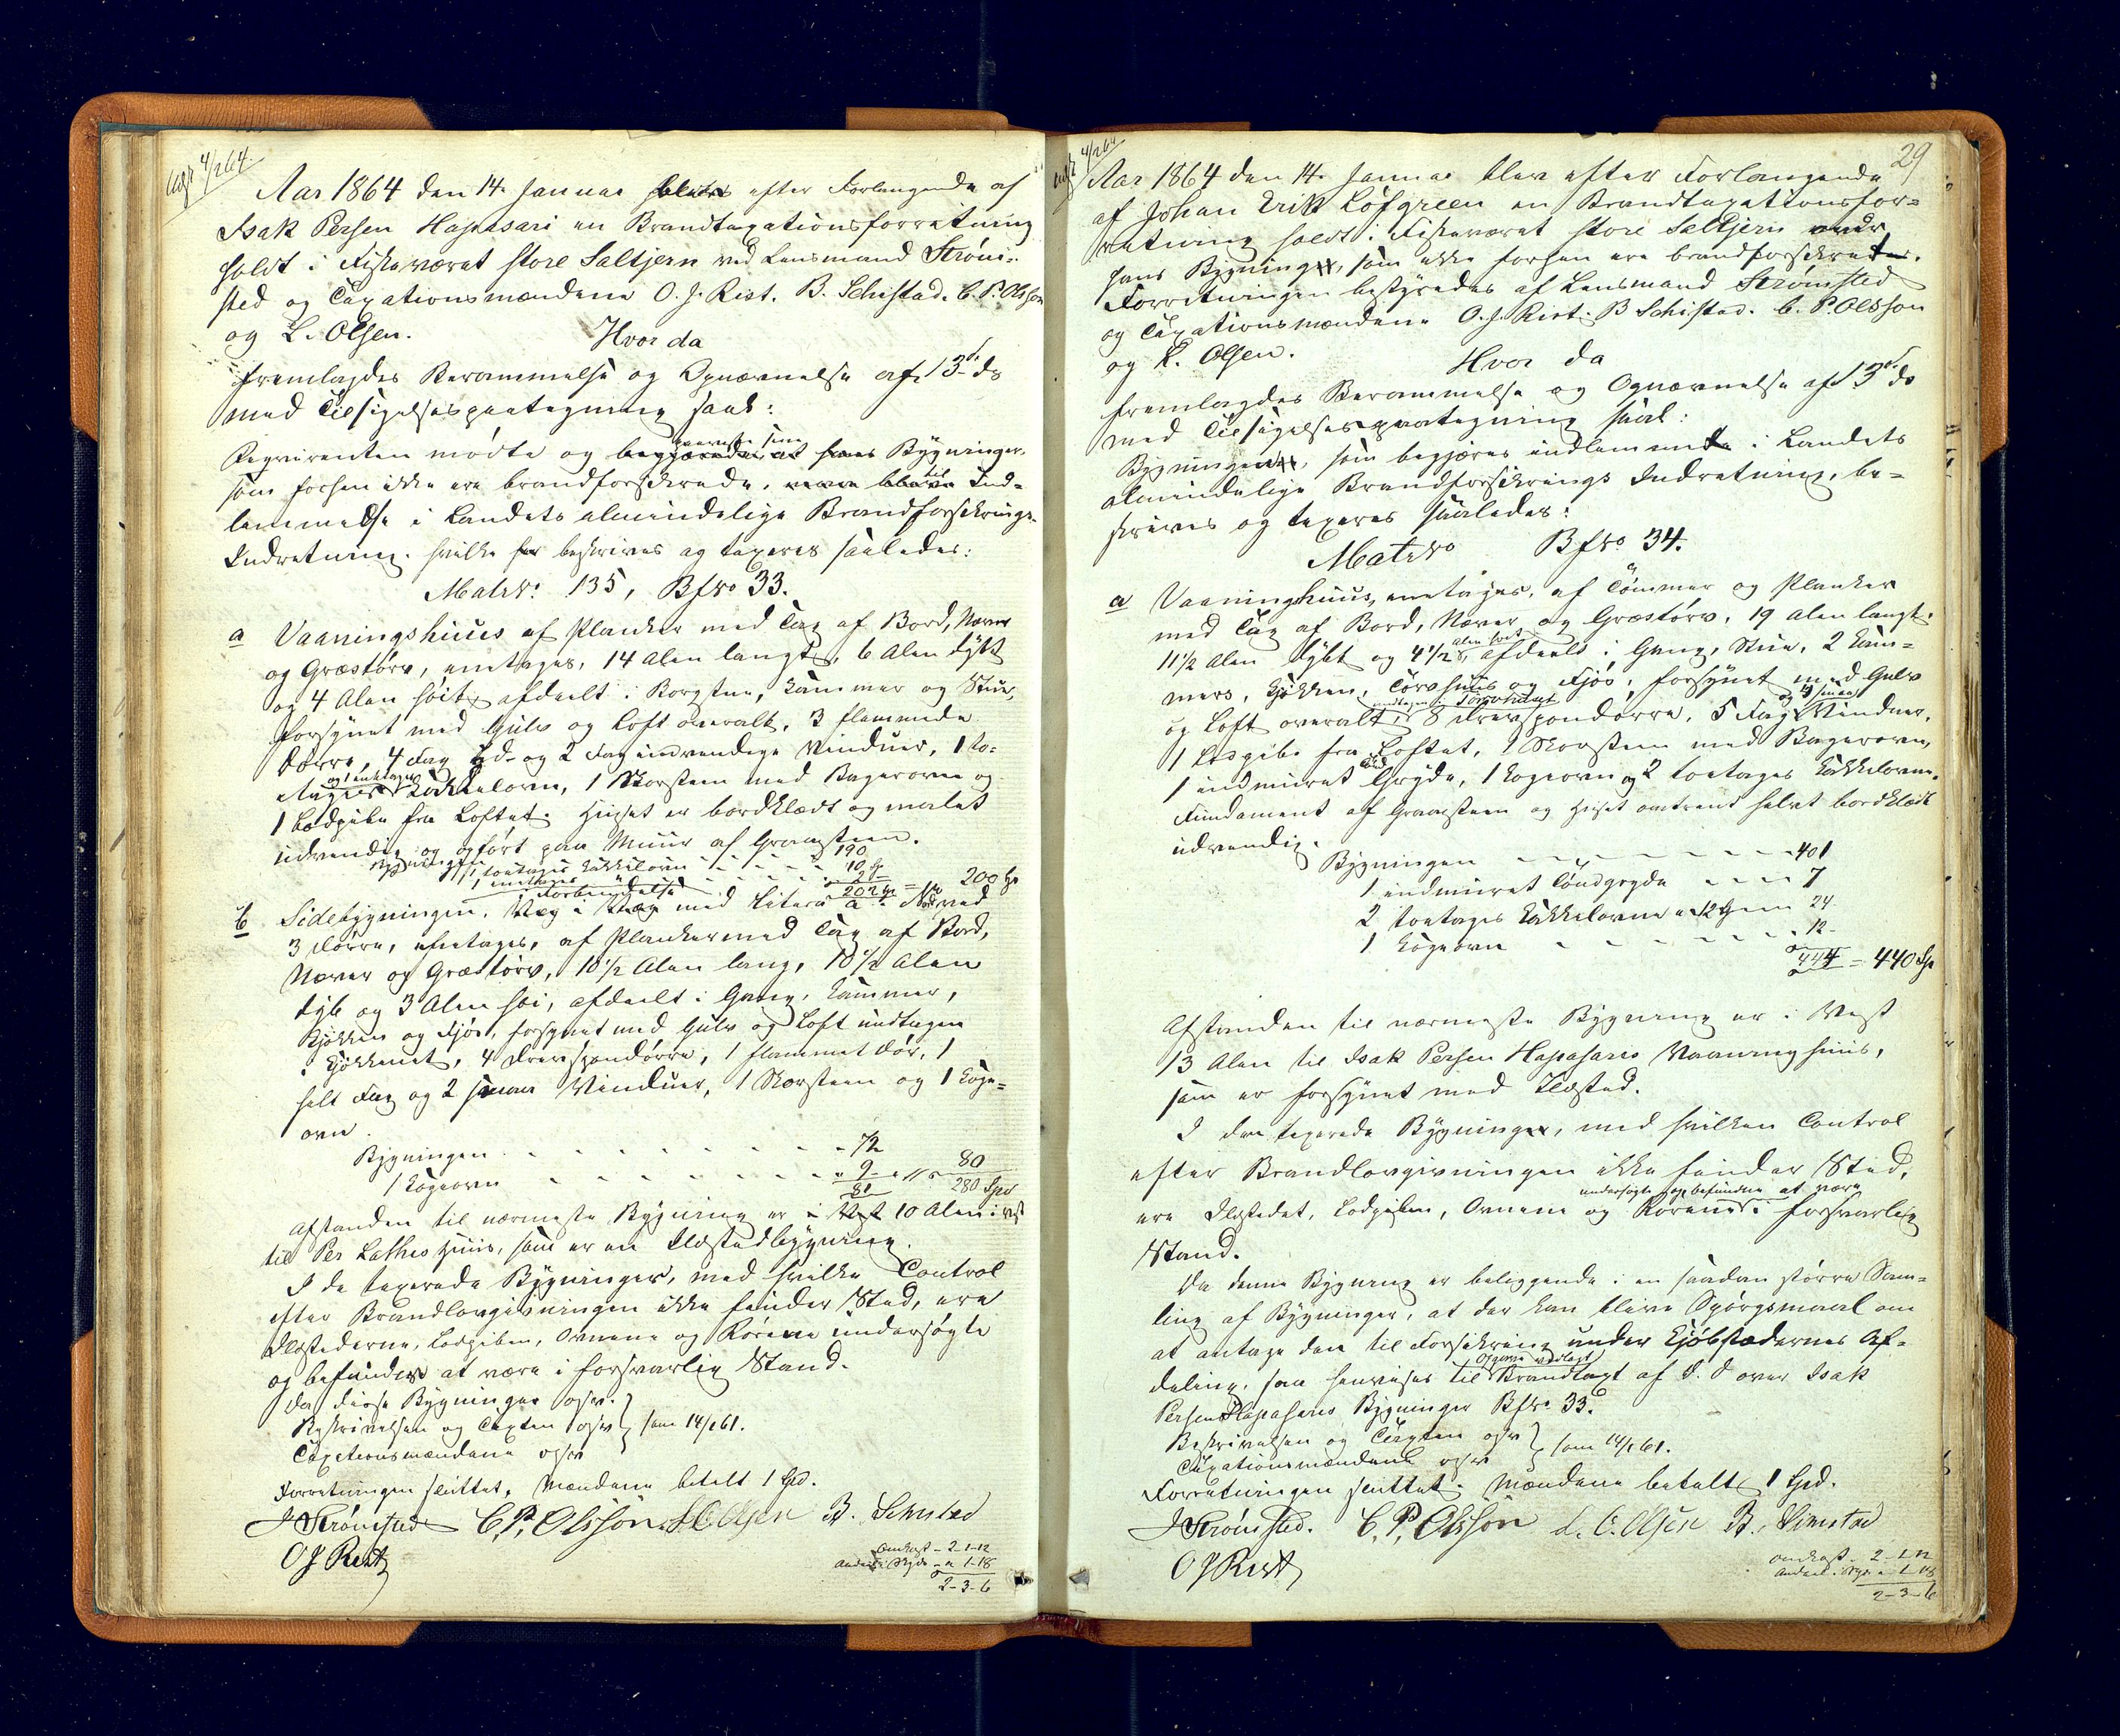 Udf 4/2 64.
Aar 1864 den 14. Januar blev efter Forlangende af
Isak Persen Hapasari en Brandtaxationsforretning
holdt i Fiskeværet store Saltjern ved Lensmand Strøm-
sted og Taxationsmændene O. J. Rist. B. Schistad. C. P. Olsson
og L. Olsen.
Hvor da
fremlagdes Berammelse og Opnævnelse af 13 ds
med Tilsigelsespaategning saal:
Reqvirenten mødte og paaviste sine Bygninger,
som forhen ikke ere brandforsikrede, til Ind-
lemmelse i Landets almindelige Brandforsikrings-
Indretning. hvilke beskrives og taxeres saaledes:
Matr No 135, Bf No 33.
a Vaaningshuus af Planker med Tag af Bord, Næver
og Græstørv, eenetages, 14 Alen langt, 6 Alen dybt
og 4 Alen høit, afdeelt i Borgstue, Kammer og Stue,
forsynet med Gulv og Loft overalt, 3 flammede
Dørre, 4 Fag Ud- og 2 Fag indvendige Vinduer, 1 to-
etages og 1 enetages Kakkelovn, 1 Skorsteen med Bagerovn og
1 Lodpibe fra Loftet. Huset er bordklædt og malet
udvendig og opført paa Muur af Graasteen.
Bygningen 190
1 toetages Kakkelovn - - - - 10
1 enetages - - - - 2
202 = 200
b Sidebygningen, Væg i Væg med Litera a Forbindelse ved
3 Dørre, eenetages, af Planker med Tag af Bord,
Næver og Græstørv, 10½ Alen lang, 10½ Alen
dyb og 3 Alen høi, afdeelt i Gang, Kammer,
Kjøkken og Fjøs, forsynet med Gulv og Loft undtagen
i Kjøkkenet, 4 Drevspondørre, 1 flammet Dør, 1
helt Fag og 2 smaa Vinduer, 1 Skorsteen og 1 Koge-
ovn.
Bygningen - - - - - 72
1 Kogeovn - - - - - 9 - 80
81 280 Spd
Afstanden til nærmeste Bygning er 10 Alen i Vest
til Per Lathis Huus, som er en Ildstedbygning.
I de taxerede Bygninger, med hvilke Control
efter Brandlovgivningen ikke finder Sted, ere
Ildstederne, Lodpiben, Ovnene og Rørene undersøgte
og befundne at være i forsvarlig Stand.
Da disse Bygninger osv.
Beskrivelsen og Taxten osv } som 14/1 61.
Taxationsmændene osv
Forretningen sluttet, Mændene betalt 1 Spd.
J Strømsted C. P. Olsson L. O. Olsen B. Schistad
O J Rist
Omkost - 2-1-12
Andeel i Skyds - " 1-18
2-3-6
29
Udf 4/2 64
Aar 1864 den 14. Januar blev efter Forlangende
af Johan Erik Løfgreen en Brandtaxationsfor-
retning holdt i Fiskeværet store Saltjern
hans Bygning, som ikke forhen ere brandforsikrede.
Forretningen bestyredes af Lensmand Strømsted
og Taxationsmændene O. J. Rist. B Schistad. C. P. Olsson
og L. Olsen.
Hvor da
fremlagdes Berammelse og Opnævnelse af 13 ds
med Tilsigelsespaategning saal:
Bygningen, som begjæres indlemmet i Landets
almindelige Brandforsikrings Indretning, be-
skrives og taxeres saaledes:
Matr No Bf No 34.
a Vaaningshuus, eenetages, af Tømmer og Planker
med Tag af Bord, Næver og Græstørv, 19 Alen langt.
11½ Alen dybt og 4½ Alen høit, afdeelt i Gang, Stue, 2 Kam-
mers, Kjøkken, Tørvhuus og Fjøs, forsynet med Gulv
og Loft overalt, undtagen i Tørvhuset 8 Drevspondørre, 5 Fag og smaa Vinduer,
1 Lodpibe fra Loftet, 1 Skorsteen med Bagerovn,
1 indmuret Gryde, 1 Kogeovn og 2 toetages Kakkelovne.
Fundament af Graasteen og Huset omtrent halvt bordklædt
udvendig.
Bygningen - - - - - 401
1 indmuret Tøndgryde - - - 7
2 toetages Kakkelovne a 12 24
1 Kogeovn - - - - - 12
444 = 440 Sp
Afstanden til nærmeste Bygning er i Vest
13 Alen til Isak Persen Hapasaris Vaaningshuus,
som er forsynet med Ildsted.
I den taxerede Bygning, med hvilken Control
efter Brandlovgivningen ikke finder Sted,
ere Ildstedet, Lodpiben, Ovnene og Rørene undersøgte og befundne at være i forsvarlig
Stand.
Da denne Bygning er beliggende i en saadan større Sam-
ling af Bygninger, at der kan blive Spørgsmaal om
at antage den til Forsikring under Kjøbstædernes Af-
deling, saa henvises til Brandtaxt af D. D over Isak
Persen Hapasaris Bygninger Bf No 33.
Beskrivelsen og Taxten osv } som 14/1 61.
Taxationsmændene osv
Forretningen sluttet. Mændene betalt 1 Spd.
J Strømsted. C. P. Olsson L. O. Olsen B. Schistad
O J Rist
Omkost - 2-1-12
Andeel i Skyds - " 1-18
2-3-6